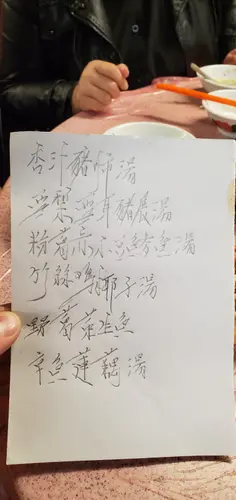 杏汁豬肺湯
雪梨雪耳豬𦟌湯
粉葛赤小豆鯪魚湯
竹絲雞椰子湯
蜆葛菜生魚
章魚蓮藕湯